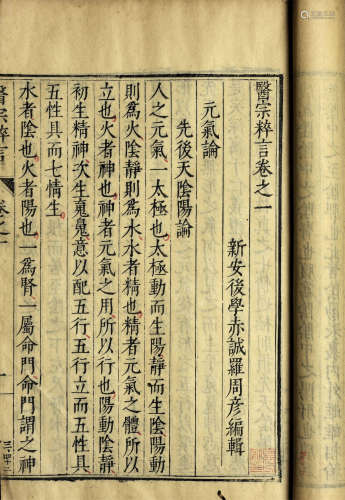 醫宗粹言卷之一
新安後學赤誠羅周彥編輯
元氣論
先後天陰陽論
人之元氣一太極也太極動而生陽靜而生陰動
則為火陰靜則為水水者精也精者元氣之體所以
立也火者神也神者元氣之用所以行也陽動陰靜
初生精神次生䰟魄意以配五行五行立而五性具
五性具而七情生
水者陰也火者陽也一為腎一屬命門命門謂之神
醫宗粹言
卷之一
一